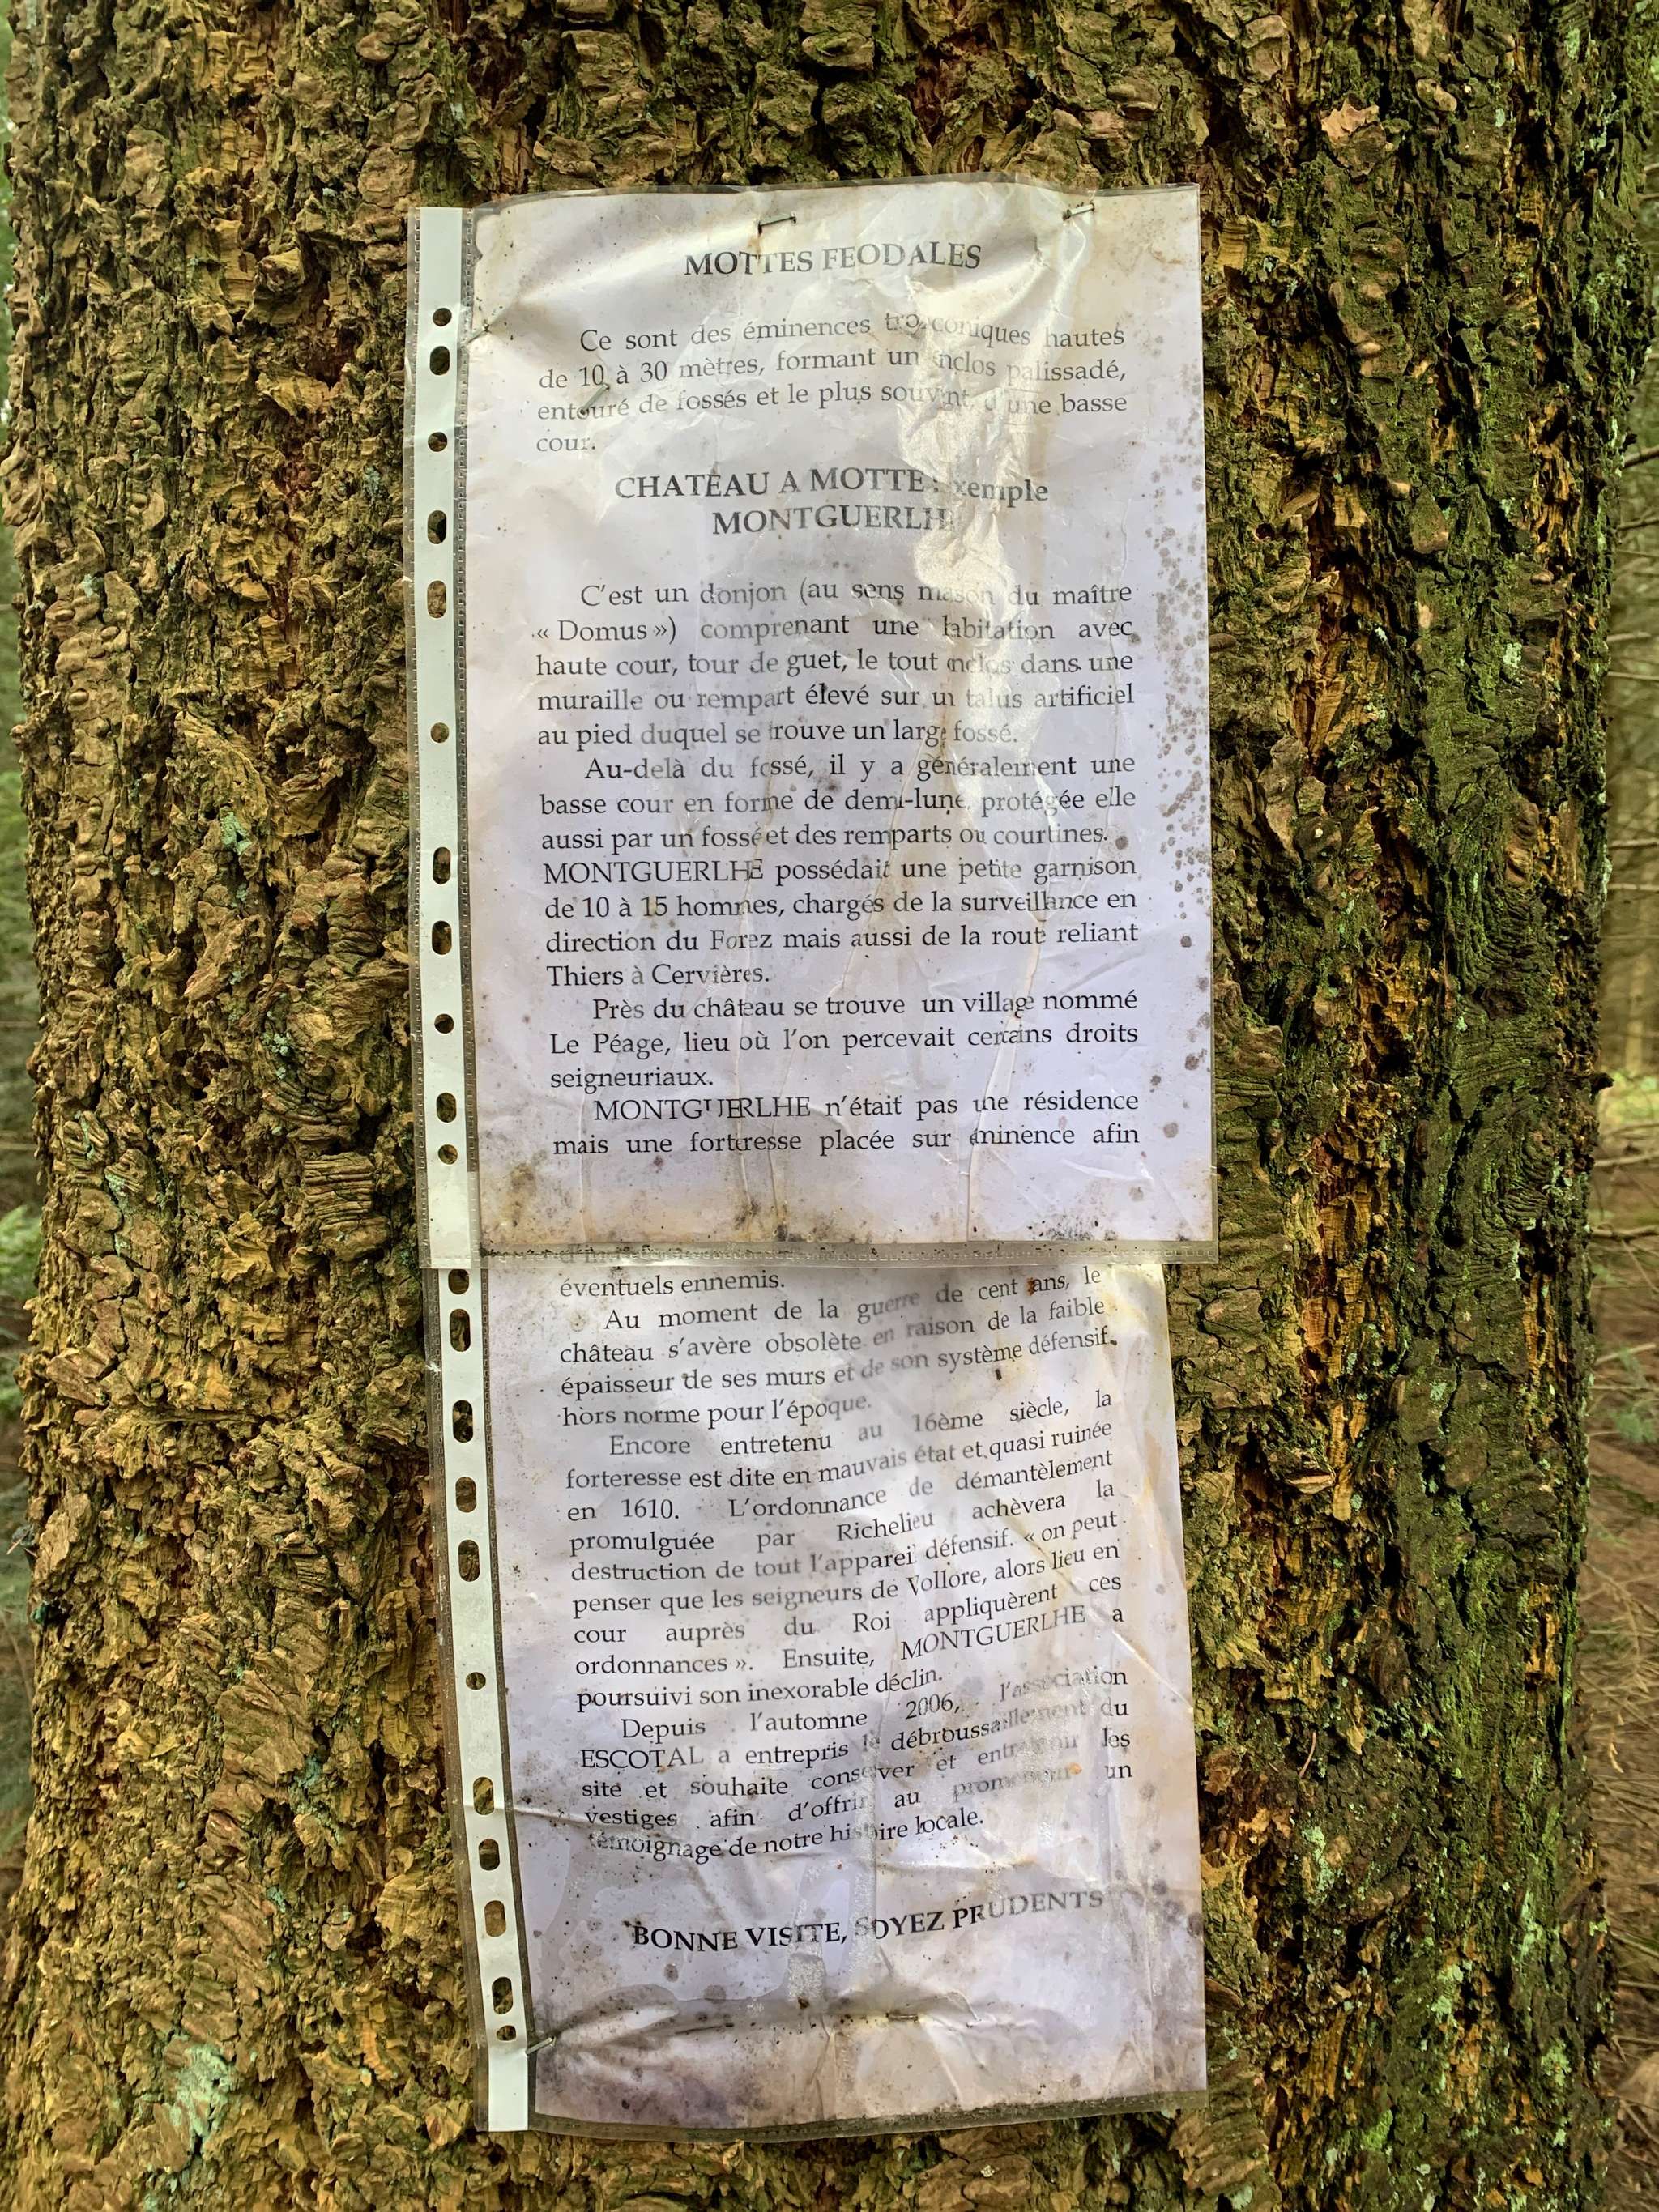 MOTTES FEODALES
Ce sont des éminences tronconiques hautes
de 10 à 30 mètres, formant un enclos palissadé,
entouré de fossés et le plus souvent, d'une basse
cour.
CHATEAU A MOTTE : exemple
MONTGUERLHE
C'est un donjon (au sens maison du maître
« Domus ») comprenant une habitation avec
haute cour, tour de guet, le tout enclos dans une
muraille ou rempart élevé sur un talus artificiel
au pied duquel se trouve un large fossé.
Au-delà du fossé, il y a généralement une
basse cour en forme de demi-lune, protégée elle
aussi par un fossé et des remparts ou courtines.
MONTGUERLHE possédait une petite garnison
de 10 à 15 hommes, chargés de la surveillance en
direction du Forez mais aussi de la route reliant
Thiers à Cervières.
Près du château se trouve un village nommé
Le Péage, lieu où l'on percevait certains droits
seigneuriaux.
MONTGUERLHE n'était pas une résidence
mais une forteresse placée sur éminence afin
éventuels ennemis.
Au moment de la guerre de cent ans, le
château s'avère obsolète en raison de la faible
épaisseur de ses murs et de son système défensif
hors norme pour l'époque.
Encore entretenu au 16ème siècle, la
forteresse est dite en mauvais état et quasi ruinée
en 1610. L'ordonnance de démantèlement
promulguée par Richelieu achèvera la
destruction de tout l'appareil défensif. « on peut
penser que les seigneurs de Vollore, alors lieu en
cour auprès du Roi appliquèrent ces
ordonnances ». Ensuite, MONTGUERLHE a
poursuivi son inexorable déclin.
Depuis l'automne 2006, l'association
ESCOTAL a entrepris le débroussaillement du
site et souhaite conserver et entretenir les
vestiges afin d'offrir au promeneur un
témoignage de notre histoire locale.
BONNE VISITE, SOYEZ PRUDENTS